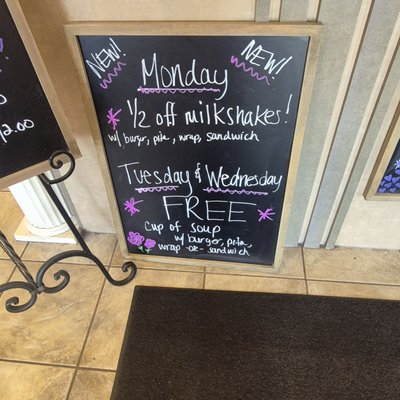 NEW!
NEW!
Monday
1/2 off milkshakes!
w/ burger, pita, wrap, sandwich
Tuesday & Wednesday
FREE
cup of soup
w/ burger, pita,
wrap -or- sandwich
2.00